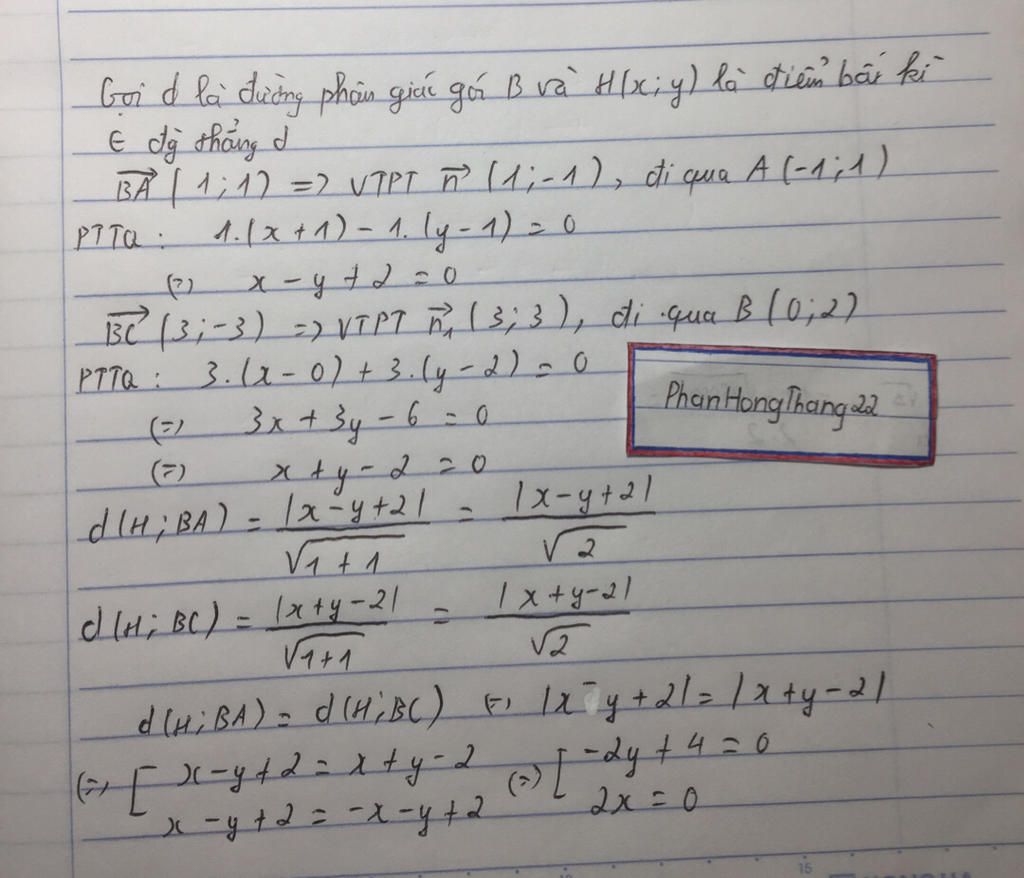 Gọi d là đường phân giác góc B và H(x;y) là điểm bất kì
∈ đg thẳng d
$\overrightarrow{BA}$ (1;1) => VTPT $\overrightarrow{n}$ (1;-1), đi qua A(-1;1)
PTTQ: 1.(x+1) - 1.(y-1) = 0
(=) x - y + 2 = 0
$\overrightarrow{BC}$ (3;-3) => VTPT $\overrightarrow{n_1}$ (3;3), đi qua B(0;2)
PTTQ: 3.(x-0) + 3.(y-2) = 0
(=) 3x + 3y - 6 = 0
PhanHongThang22
(=) x + y - 2 = 0
d(H;BA) = $\frac{|x-y+2|}{\sqrt{1+1}}$ = $\frac{|x-y+2|}{\sqrt{2}}$
d(H;BC) = $\frac{|x+y-2|}{\sqrt{1+1}}$ = $\frac{|x+y-2|}{\sqrt{2}}$
d(H;BA) = d(H;BC) (=) |x-y+2| = |x+y-2|
(=) [ x-y+2 = x+y-2 (=) [ -2y+4 = 0
x-y+2 = -x-y+2 2x = 0